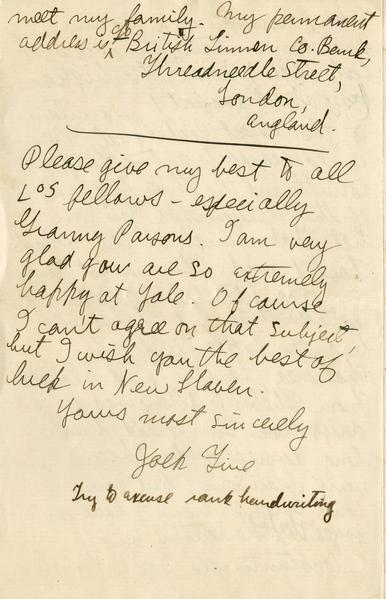 meet my family. My permanent
address is c/o British Linnen Co. Bank,
Threadneedle Street,
London,
England.
Please give my best to all
Los fellows - especially
Granny Parsons. I am very
glad you are so extremely
happy at Yale. Of course
I can't agree on that subject,
but I wish you the best of
luck in New Haven.
Yours most sincerely
Jack
Try to excuse rank handwriting